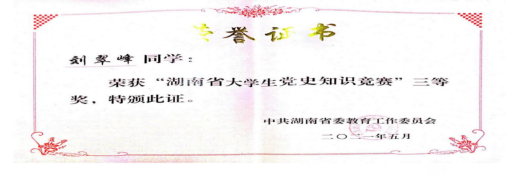 荣誉证书
刘翠峰同学：
荣获“湖南省大学生党史知识竞赛”三等
奖，特颁此证。
中共湖南省委教育工作委员会
二〇二一年五月